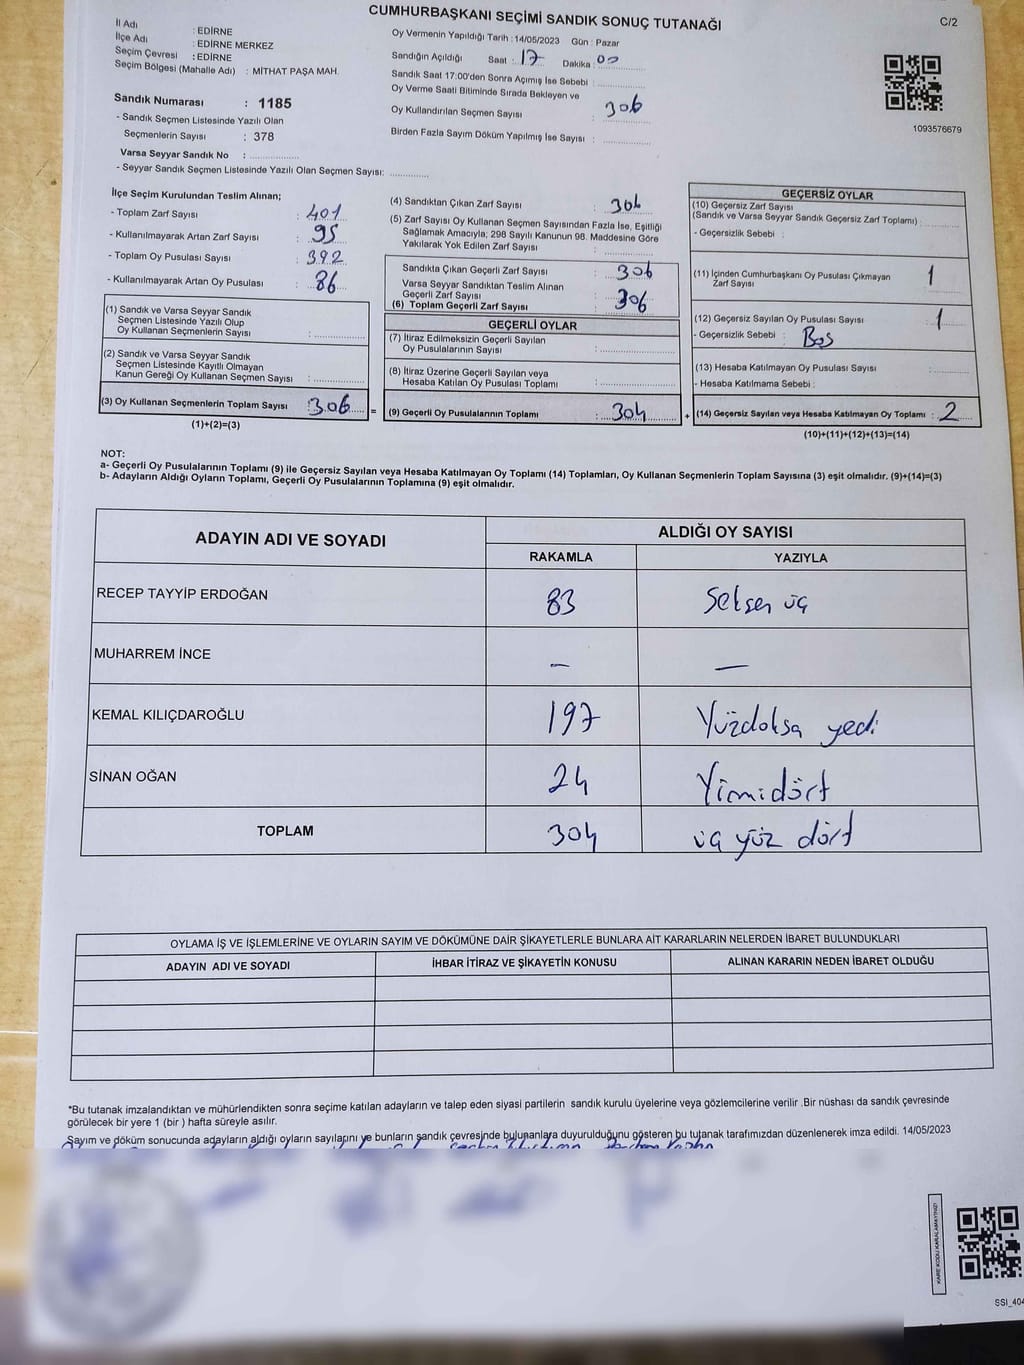 CUMHURBAŞKANI SEÇİMİ SANDIK SONUÇ TUTANAĞI
C/2
İl Adı : EDİRNE
İlçe Adı : EDİRNE MERKEZ
Seçim Çevresi : EDİRNE
Seçim Bölgesi (Mahalle Adı) : MİTHAT PAŞA MAH.
Sandık Numarası : 1185
- Sandık Seçmen Listesinde Yazılı Olan
Seçmenlerin Sayısı : 378
Varsa Seyyar Sandık No :
- Seyyar Sandık Seçmen Listesinde Yazılı Olan Seçmen Sayısı:
Oy Vermenin Yapıldığı Tarih : 14/05/2023 Gün : Pazar
Sandığın Açıldığı Saat : 17 Dakika : 00
Sandık Saat 17:00'den Sonra Açımış İse Sebebi :
Oy Verme Saati Bitiminde Sırada Bekleyen ve
Oy Kullandırılan Seçmen Sayısı : 306
Birden Fazla Sayım Döküm Yapılmış İse Sayısı :
1093576679
İlçe Seçim Kurulundan Teslim Alınan;
- Toplam Zarf Sayısı : 401
- Kullanılmayarak Artan Zarf Sayısı : 95
- Toplam Oy Pusulası Sayısı : 392
- Kullanılmayarak Artan Oy Pusulası : 86
(1) Sandık ve Varsa Seyyar Sandık
Seçmen Listesinde Yazılı Olup
Oy Kullanan Seçmenlerin Sayısı :
(2) Sandık ve Varsa Seyyar Sandık
Seçmen Listesinde Kayıtlı Olmayan
Kanun Gereği Oy Kullanan Seçmen Sayısı :
(3) Oy Kullanan Seçmenlerin Toplam Sayısı : 306 =
(1)+(2)=(3)
(4) Sandıktan Çıkan Zarf Sayısı : 306
(5) Zarf Sayısı Oy Kullanan Seçmen Sayısından Fazla İse, Eşitliği
Sağlamak Amacıyla; 298 Sayılı Kanunun 98. Maddesine Göre
Yakılarak Yok Edilen Zarf Sayısı :
Sandıkta Çıkan Geçerli Zarf Sayısı : 306
Varsa Seyyar Sandıktan Teslim Alınan
Geçerli Zarf Sayısı :
(6) Toplam Geçerli Zarf Sayısı : 306
GEÇERLİ OYLAR
(7) İtiraz Edilmeksizin Geçerli Sayılan
Oy Pusulalarının Sayısı :
(8) İtiraz Üzerine Geçerli Sayılan veya
Hesaba Katılan Oy Pusulası Toplamı :
(9) Geçerli Oy Pusulalarının Toplamı : 304 +
GEÇERSİZ OYLAR
(10) Geçersiz Zarf Sayısı
(Sandık ve Varsa Seyyar Sandık Geçersiz Zarf Toplamı) :
- Geçersizlik Sebebi :
(11) İçinden Cumhurbaşkanı Oy Pusulası Çıkmayan
Zarf Sayısı : 1
(12) Geçersiz Sayılan Oy Pusulası Sayısı : 1
- Geçersizlik Sebebi : Boş
(13) Hesaba Katılmayan Oy Pusulası Sayısı :
- Hesaba Katılmama Sebebi :
(14) Geçersiz Sayılan veya Hesaba Katılmayan Oy Toplamı : 2
(10)+(11)+(12)+(13)=(14)
NOT:
a- Geçerli Oy Pusulalarının Toplamı (9) ile Geçersiz Sayılan veya Hesaba Katılmayan Oy Toplamı (14) Toplamları, Oy Kullanan Seçmenlerin Toplam Sayısına (3) eşit olmalıdır. (9)+(14)=(3)
b- Adayların Aldığı Oyların Toplamı, Geçerli Oy Pusulalarının Toplamına (9) eşit olmalıdır.
ADAYIN ADI VE SOYADI ALDIĞI OY SAYISI
RAKAMLA YAZIYLA
RECEP TAYYİP ERDOĞAN 83 Seksen üç
MUHARREM İNCE — —
KEMAL KILIÇDAROĞLU 197 Yüzdoksa yedi
SİNAN OĞAN 24 Yirmidört
TOPLAM 304 üç yüz dört
OYLAMA İŞ VE İŞLEMLERİNE VE OYLARIN SAYIM VE DÖKÜMÜNE DAİR ŞİKAYETLERLE BUNLARA AİT KARARLARIN NELERDEN İBARET BULUNDUKLARI
ADAYIN ADI VE SOYADI İHBAR İTİRAZ VE ŞİKAYETİN KONUSU ALINAN KARARIN NEDEN İBARET OLDUĞU
*Bu tutanak imzalandıktan ve mühürlendikten sonra seçime katılan adayların ve talep eden siyasi partilerin sandık kurulu üyelerine veya gözlemcilerine verilir .Bir nüshası da sandık çevresinde
görülecek bir yere 1 (bir ) hafta süreyle asılır.
Sayım ve döküm sonucunda adayların aldığı oyların sayılarını ve bunların sandık çevresinde bulunanlara duyurulduğunu gösteren bu tutanak tarafımızdan düzenlenerek imza edildi. 14/05/2023
KARE KODU KARALAMAYINIZ!
SSI_404